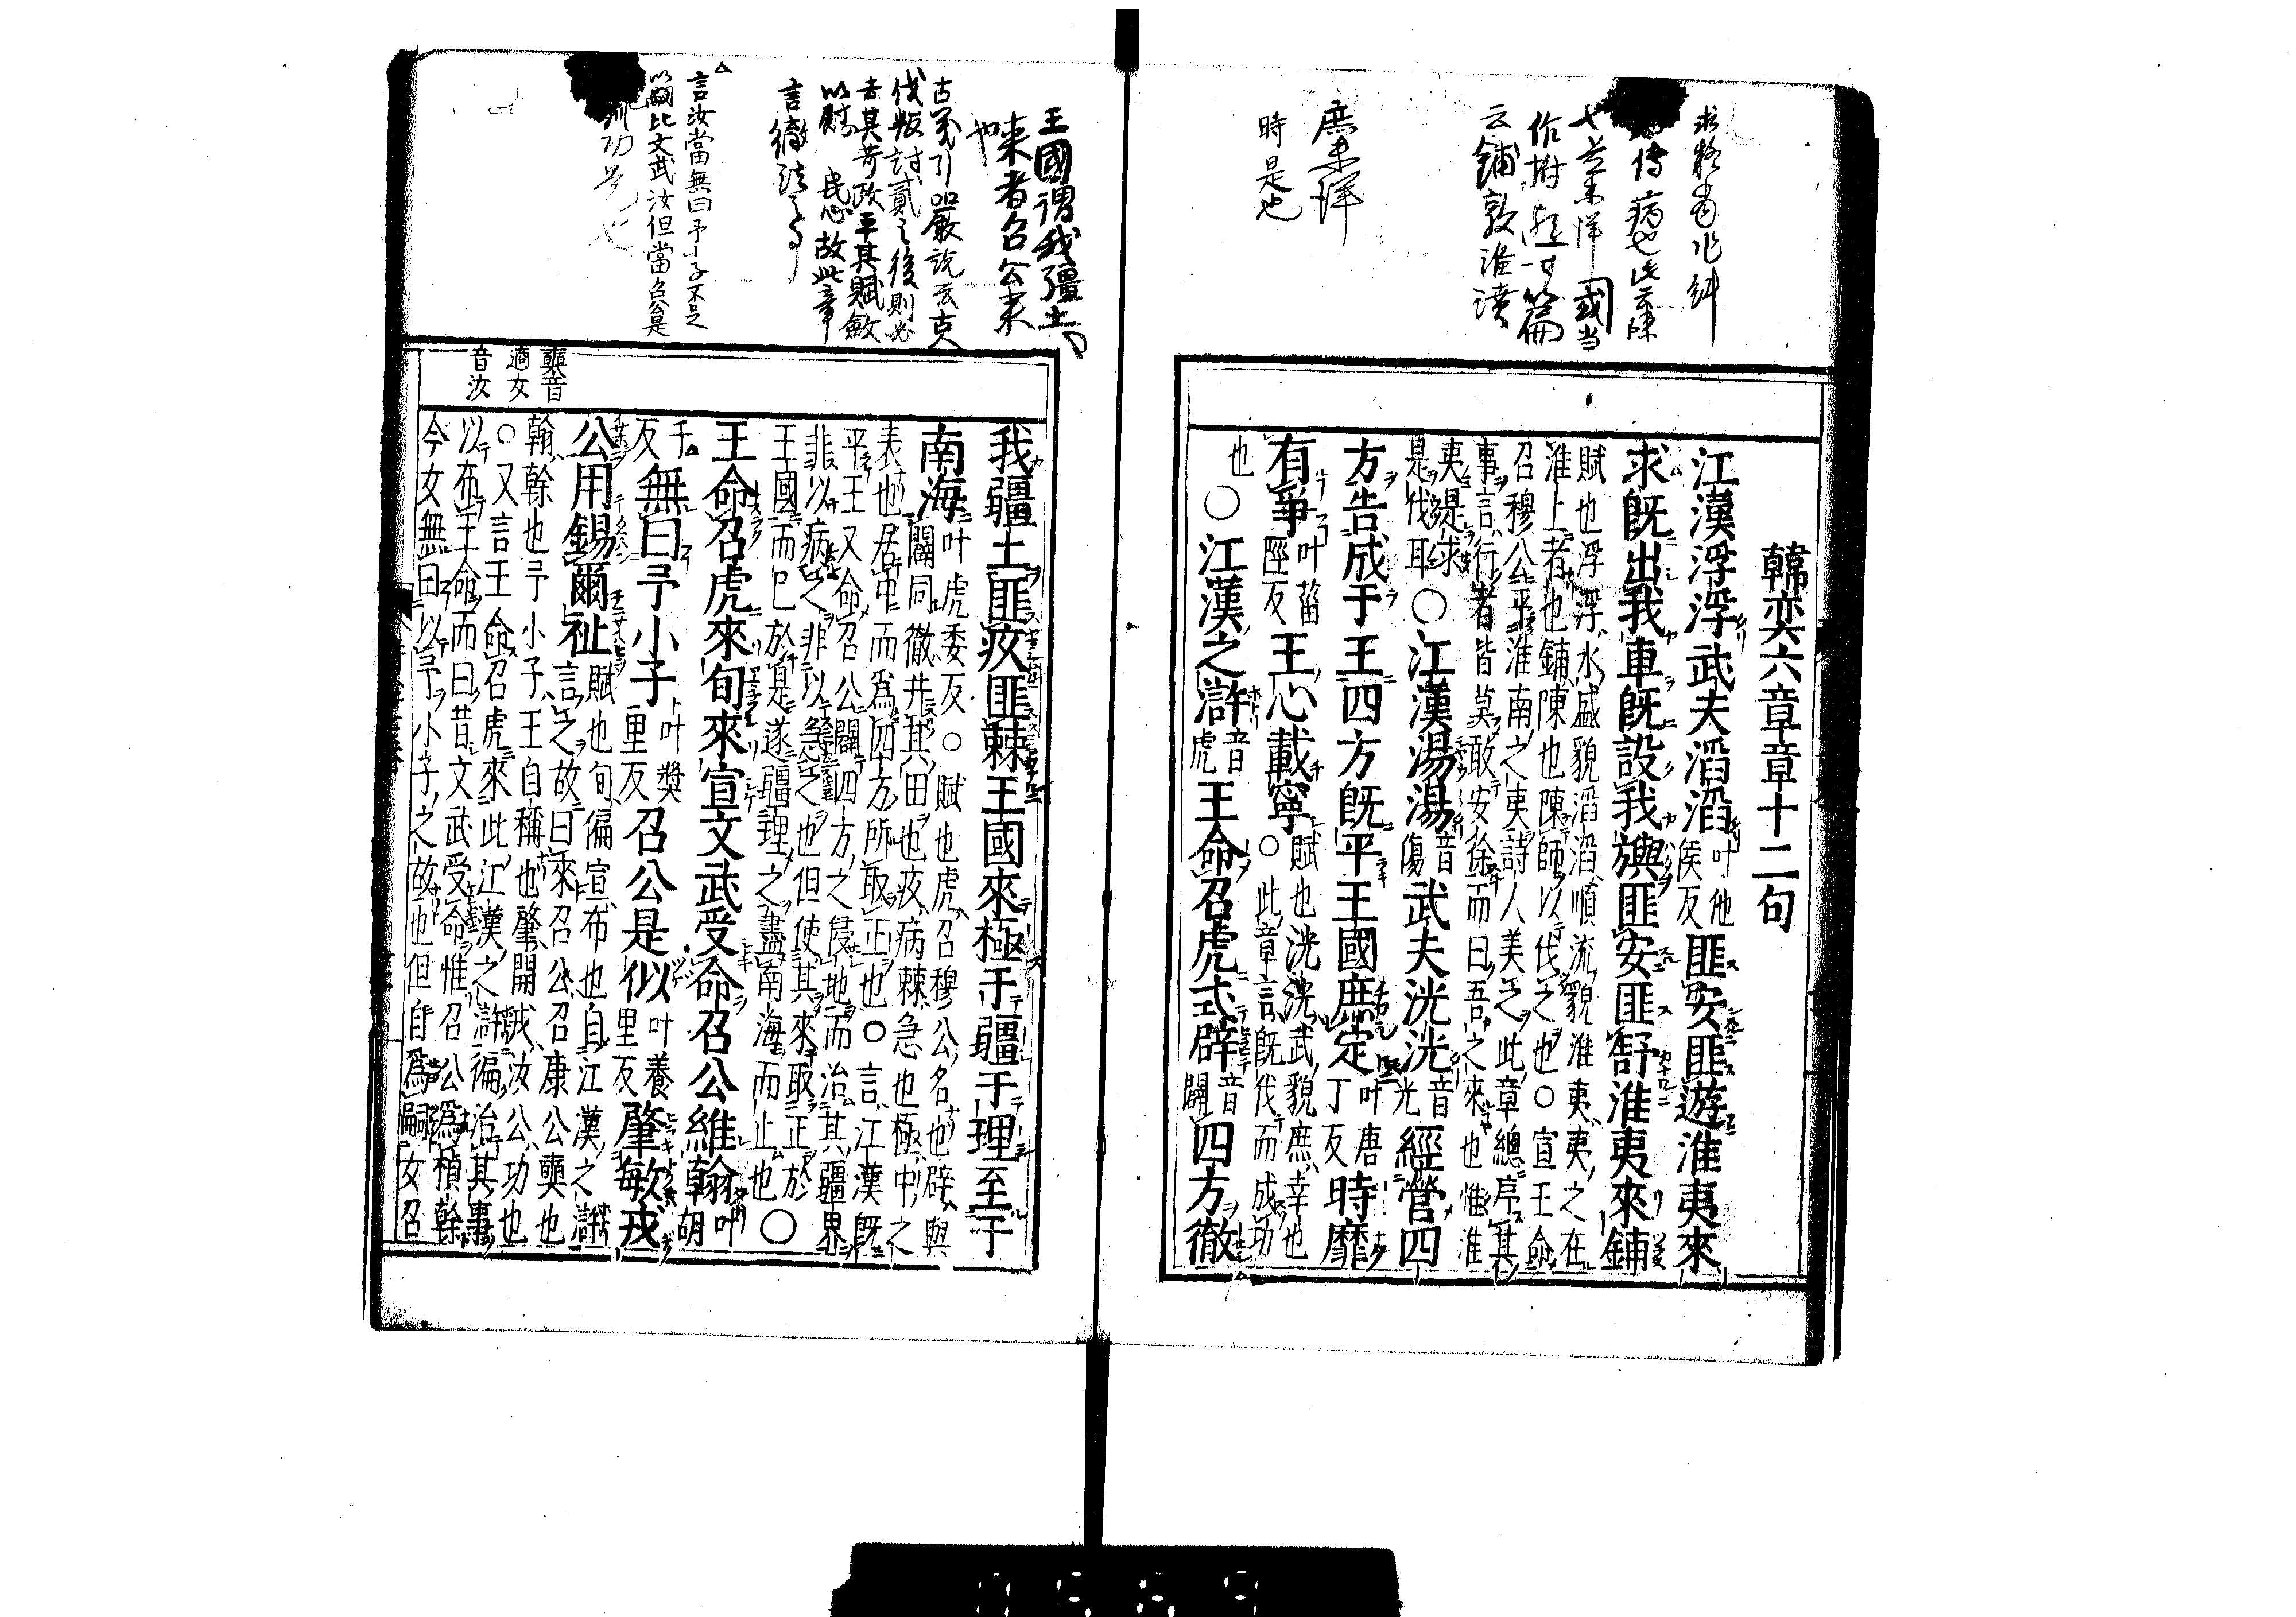 韓奕六章章十二句
江漢浮浮武夫滔滔叶他侯反匪安匪遊淮夷來
求既出我車既設我旟匪安匪舒淮夷來鋪
賦也浮浮水盛貌滔滔順流貌淮夷夷之在
淮上者也鋪陳也陳師以伐之也○宣王命
召穆公平淮南之夷詩人美之此章總序其
事言行者皆莫敢安徐而曰吾之來也惟淮
夷是求是伐耳○江漢湯湯音傷武夫洸洸音光經營四
方告成于王四方既平王國庶定叶唐丁反時靡
有爭叶甾陘反王心載寧○賦也洸洸武貌庶幸也
此章言既伐而成功
也○江漢之滸音虎王命召虎式辟音闢四方徹
我疆土匪疚匪棘王國來極于疆于理至于
南海叶虎委反○賦也虎召穆公名也辟與
闢同徹井其田也疚病棘急也極中之
表也居中而爲四方所取正也○言江漢既
平王又命召公闢四方之侵地而治其疆界
非以病之非以急之也但使其來取正於
王國而已於是遂疆理之盡南海而止也○
王命召虎來旬來宣文武受命召公維翰叶胡
千反無曰予小子叶獎里反召公是似叶養里反肇敏戎
公用錫爾祉賦也旬徧宣布也自江漢之滸
言之故曰來召公召康公奭也
翰幹也予小子王自稱也肇開戎汝公功也
○又言王命召虎來此江漢之滸徧治其事
以布王命而曰昔文武受命惟召公爲楨幹
今女無曰以予小子之故也但自爲嗣女召
奭音
適女
音汝
庶未詳
時是也
云鋪敦淮濆
王國謂我疆土
來者召公來
也
古義引嚴說云古人
伐叛討貳之後則必
去其苛政平其賦斂
民心故此章
言徹法
言汝當無曰予小子不足
以嗣比文武汝但當召公是